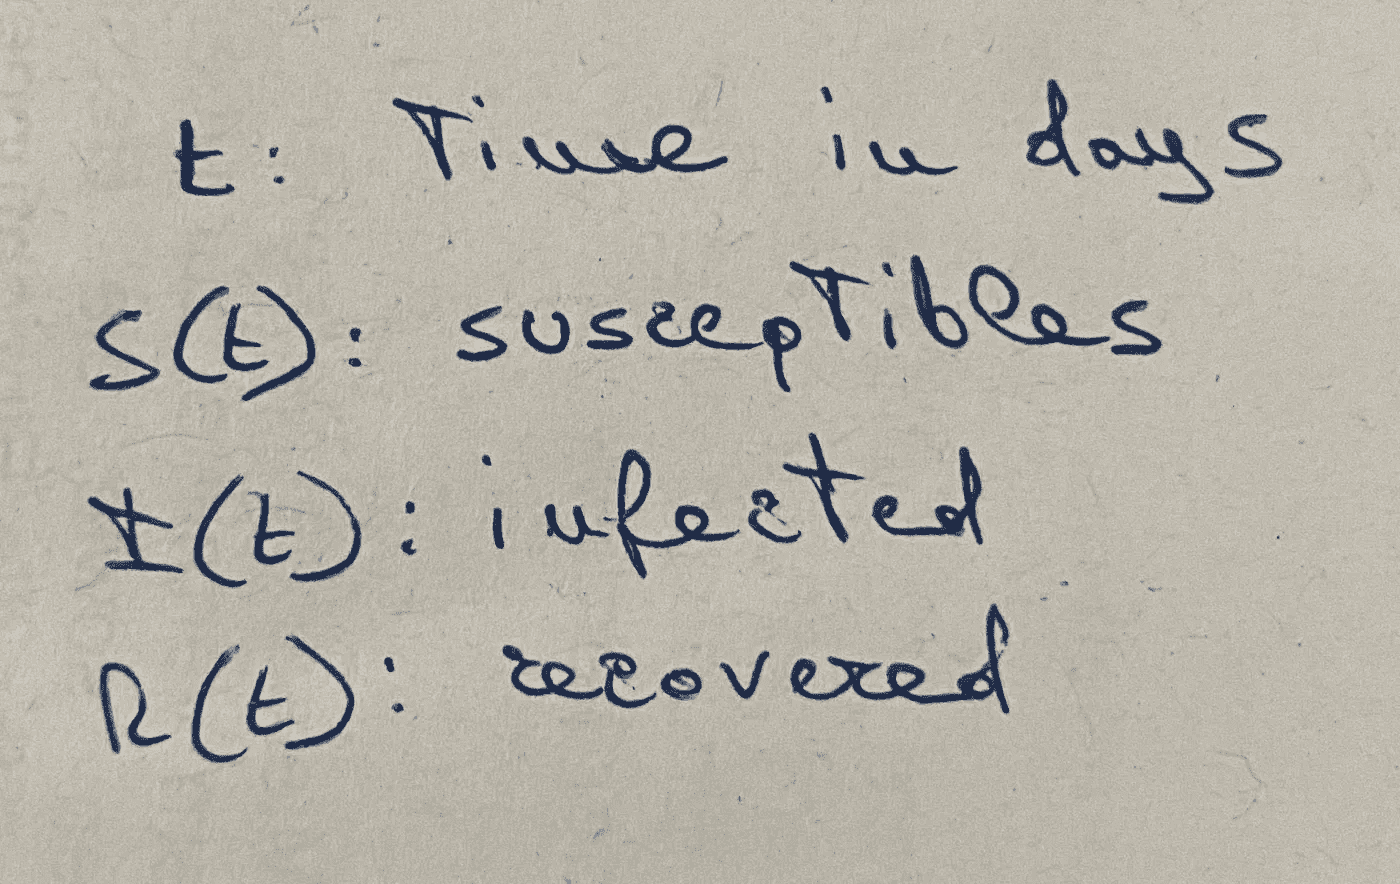 t: Time in days
S(t): susceptibles
I(t): infected
R(t): recovered